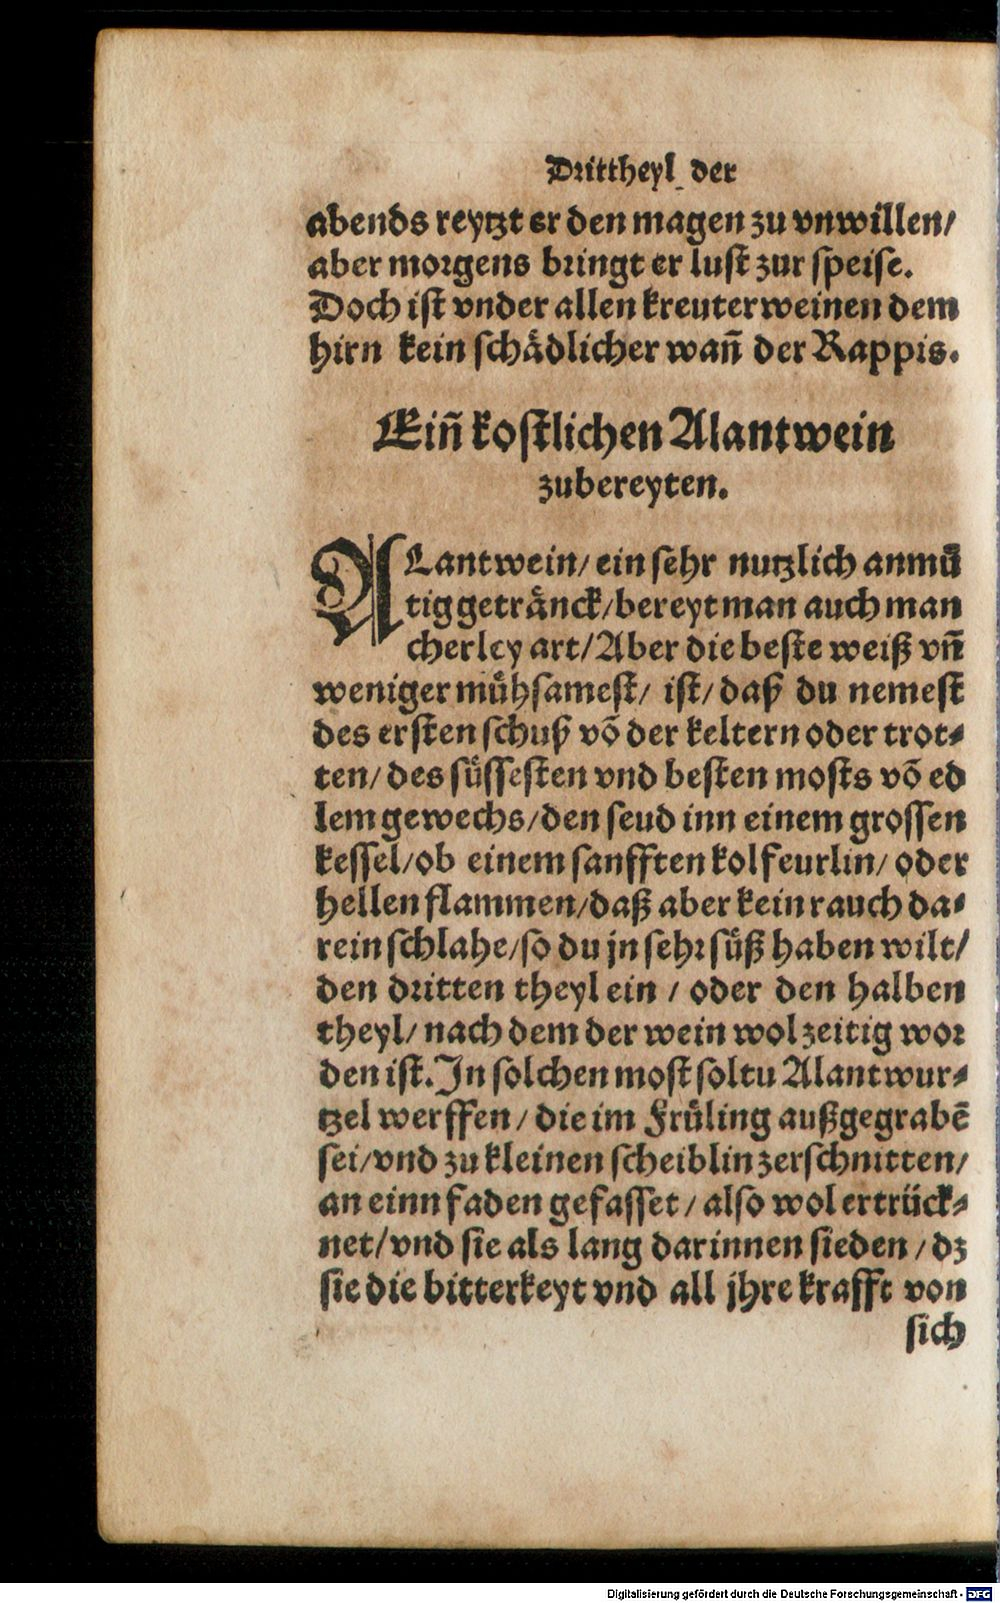 Drittheyl der
abends reytzt er den magen zu vnwillen/
aber morgens bringt er lust zur speise.
Doch ist vnder allen kreuterweinen dem
hirn kein schaͤdlicher wañ der Rappis.
Eiñ kostlichen Alantwein
zubereyten.
ALantwein/ ein sehr nutzlich anmuͤ
tig getraͤnck/ bereyt man auch man
cherley art/ Aber die beste weiß vñ
weniger muͤhsamest/ ist/ daß du nemest
des ersten schuß võ der keltern oder trot⸗
ten/ des suͤssesten vnd besten mosts võ ed
lem gewechs/ den seud inn einem grossen
kessel/ ob einem sanfften kolfeurlin/ oder
hellen flammen/ daß aber kein rauch da⸗
rein schlahe/ so du jn sehr suͤß haben wilt/
den dritten theyl ein / oder den halben
theyl/ nach dem der wein wol zeitig wor
den ist. In solchen most soltu Alantwur⸗
tzel werffen / die im Fruͤling außgegrabē
sei/ vnd zu kleinen scheiblin zerschnitten/
an einn faden gefasset / also wol ertrück⸗
net/ vnd sie als lang darinnen sieden / dz
sie die bitterkeyt vnd all jhre krafft von
sich
Digitalisierung gefördert durch die Deutsche Forschungsgemeinschaft - DFG